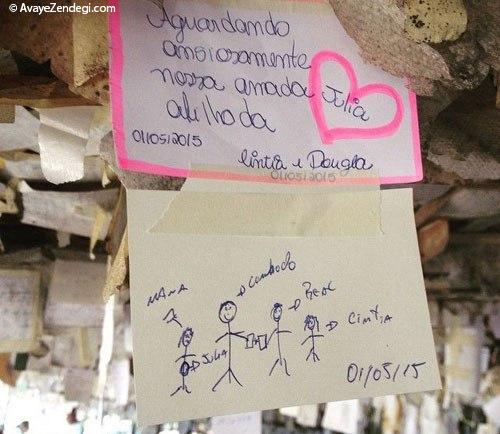 © AvayeZendegi.com
Aguardando
ansiosamente
nossa amada Julia
afilhada
01/05/2015
Cintia e Dougla
01/05/2015
cunhado
JULIA
CINTIA
01/05/15